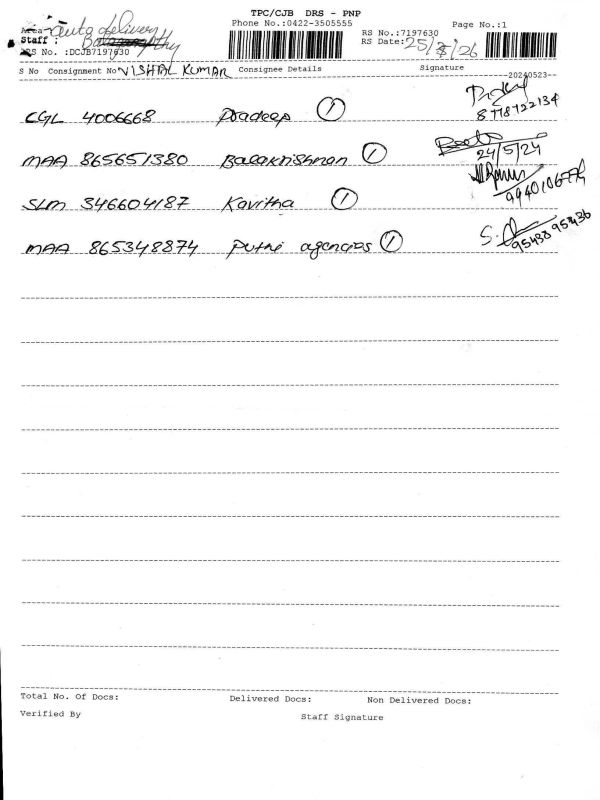 TPC/CJB DRS - PNP
Area: auto delivery
Phone No.:0422-3505555
Page No.:1
Staff :
RS No.:7197630
DRS No. :DCJB7197630
RS Date:25/ /26
S No Consignment No VISHAL KUMAR Consignee Details Signature
--20240523--
CGL 4006668 Pradeep 1
8778722134
MAA 865651380 Balakrishnan 1
24/5/24
SLM 346604187 Kavitha 1
MAA 865348874 Putni agencies 1
95438 95436
Total No. Of Docs: Delivered Docs: Non Delivered Docs:
Verified By Staff Signature